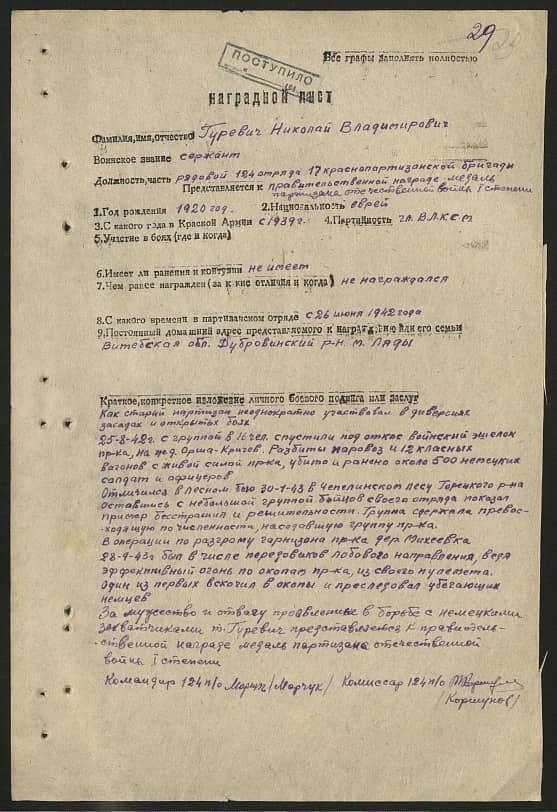 29
Все графы заполнять полностью
ПОСТУПИЛО
наградной лист
Фамилия,имя,отчество Гуревич Николай Владимирович
Воинское звание сержант
Должность,часть рядовой 124 отряда 17 краснопартизанской бригады
Представляется к правительственной награде медаль
партизана отечественной войны I степени
1.Год рождения 1920 год. 2.Национальность еврей
3.С какого года в Красной Армии с 1939г. 4.Партийность чл. ВЛКСМ
5.Участие в боях(где и когда)
6.Имеет ли ранения и контузии не имеет
7.Чем ранее награжден(за какие отличия и когда) не награждался
8.С какого времени в партизанском отряде с 26 июня 1942 года
9.Постоянный домашний адрес представляемого к награждению или его семьи
Витебская обл. Дубровинский р-н. м. Ляды
Краткое,конкретное изложение личного боевого подвига или заслуг
Как старый партизан неоднократно участвовал в диверсиях
засадах и открытых боях
25-8-42г. с группой в 16 чел. спустили под откос воинский эшелон
пр-ка, на ж.д. Орша-Кричев. Разбиты паровоз и 12 класных
вагонов с живой силой пр-ка, убито и ранено около 500 немецких
солдат и офицеров
Отличился в лесном бою 30-4-43 в Чепелинском лесу Горецкого р-на
Оставшись с небольшой группой бойцов своего отряда показал
пример бесстрашия и решительности. Группа сдержала превос-
ходящую по численности, наседавшую группу пр-ка.
В операции по разгрому гарнизона пр-ка дер. Михеевка
28-9-43г был в числе передовиков лобового направления, ведя
эффективный огонь по окопам пр-ка, из своего пулемета.
Один из первых вскочил в окопы и преследовал убегающих
немцев
За мужество и отвагу проявленные в борьбе с немецкими
захватчиками т. Гуревич представляется к правитель-
-ственной награде медаль партизана отечественной
войны I степени
Командир 124 п/о /Марчук/ Комиссар 124 п/о
/Коршунов/